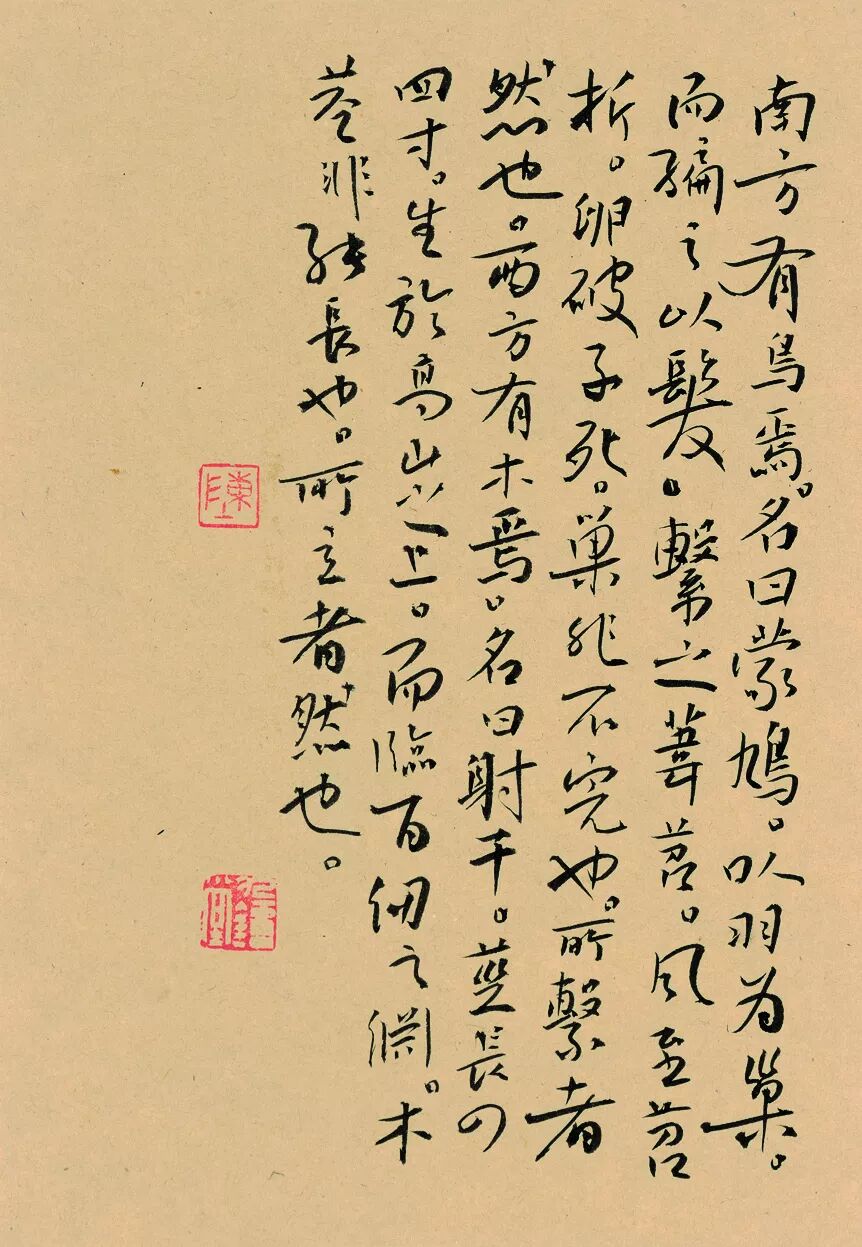 南方有鳥焉。名曰蒙鳩。以羽为巢。
而編之以髮。繫之葦苕。风至苕
折。卵破子死。巢非不完也。所繫者
然也。西方有木焉。名曰射干。莖長
四寸。生於高山之上。而臨百仞之淵。木
莖非能長也。所立者然也。
陳